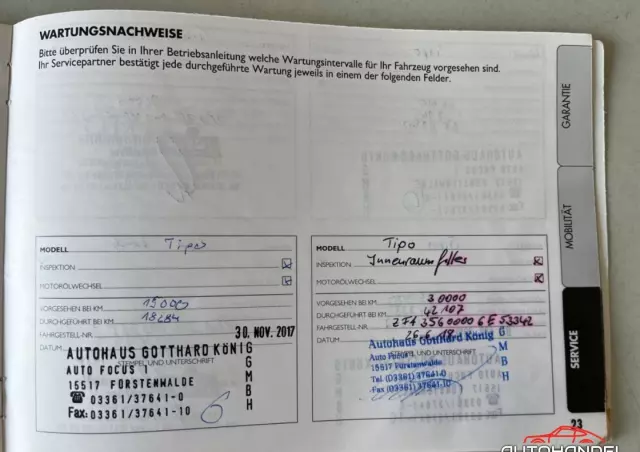 WARTUNGSNACHWEISE
Bitte überprüfen Sie in Ihrer Betriebsanleitung welche Wartungsintervalle für Ihr Fahrzeug vorgesehen sind.
Ihr Servicepartner bestätigt jede durchgeführte Wartung jeweils in einem der folgenden Felder.
GARANTIE
MOBILITÄT
SERVICE
MODELL Tipo
INSPEKTION
MOTORÖLWECHSEL
VORGESEHEN BEI KM 15000
DURCHGEFÜHRT BEI KM
FAHRGESTELL-NR.
DATUM 30. NOV. 2017
AUTOHAUS GOTTHARD KÖNIG GMBH
STEMPEL UND UNTERSCHRIFT
AUTO FOCUS
15517 FÜRSTENWALDE
☎ 03361/37641-0
Fax: 03361/37641-10
MODELL Tipo
INSPEKTION Innenraumfilter
MOTORÖLWECHSEL
VORGESEHEN BEI KM 30000
DURCHGEFÜHRT BEI KM 42107
FAHRGESTELL-NR. ZFA3560000 6E53342
DATUM 26.6.18
Autohaus Gotthard König GMBH
STEMPEL UND UNTERSCHRIFT
Auto Focus
15517 Fürstenwalde
Tel. (03361) 37641-0
Fax (03361) 37641-10
23
AUTOHANDEL